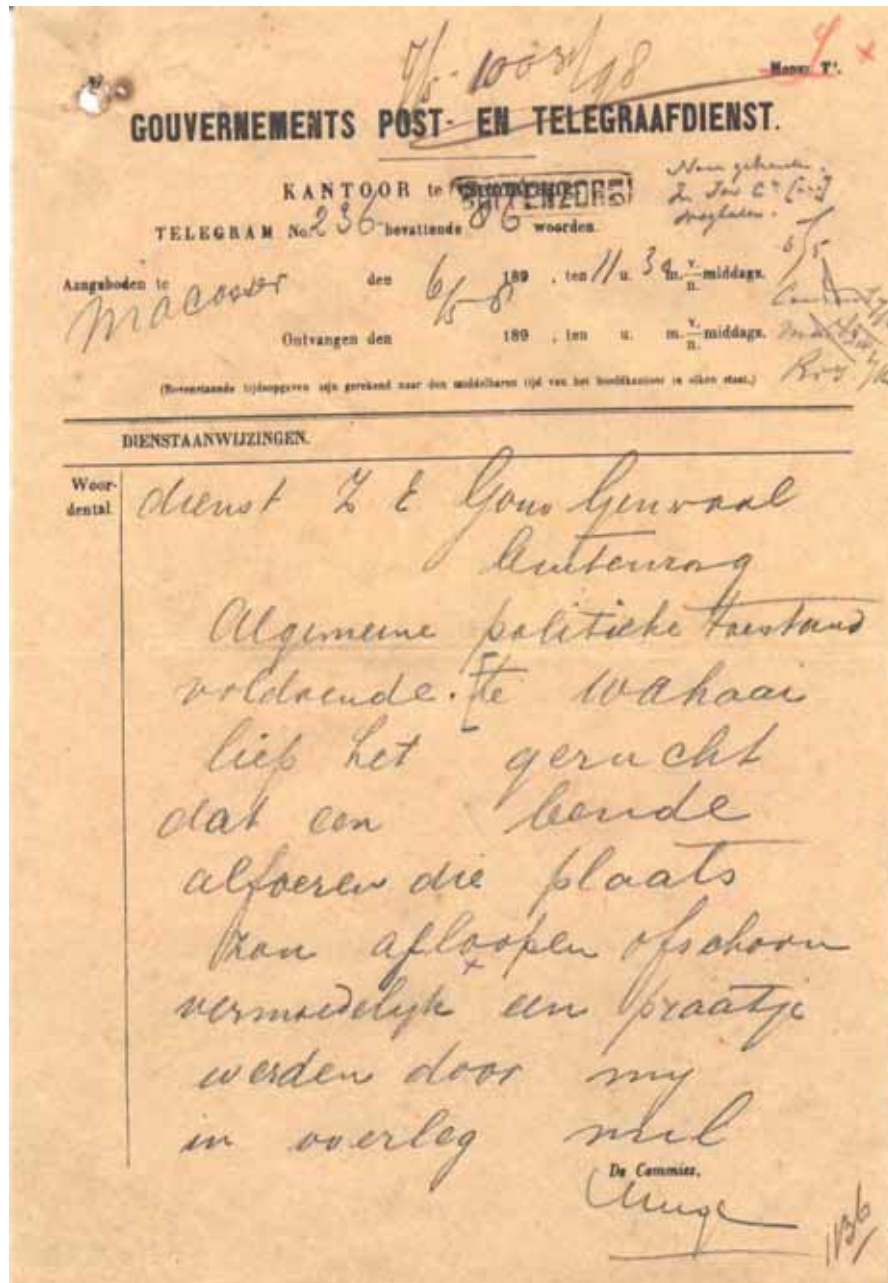 7/5 - 1003/98
GOUVERNEMENTS POST- EN TELEGRAAFDIENST.
KANTOOR te BUITENZORG
TELEGRAM No. 236 bevattende 86 woorden.
Aangeboden te Macasser den 6/5 - 8 189 , ten 11 u. 30 m. v./n. middags.
Ontvangen den 189 , ten u. m. v./n. middags.
(Bovenstaande tijdsopgaven zijn gerekend naar den middelbaren tijd van het hoofdkantoor in elken staat.)
DIENSTAANWIJZINGEN.
Woor-
dental
dienst Z E Gouv Genraal
Buitenzorg
Algemeene politieke toestand
voldoende. [te Wahaai
liep het gerucht
dat een bende
alfoeren die plaats
zou afloopen ofschoon
vermoedelyk een praatje
werden door my
in overleg mil
De Commies,
1136